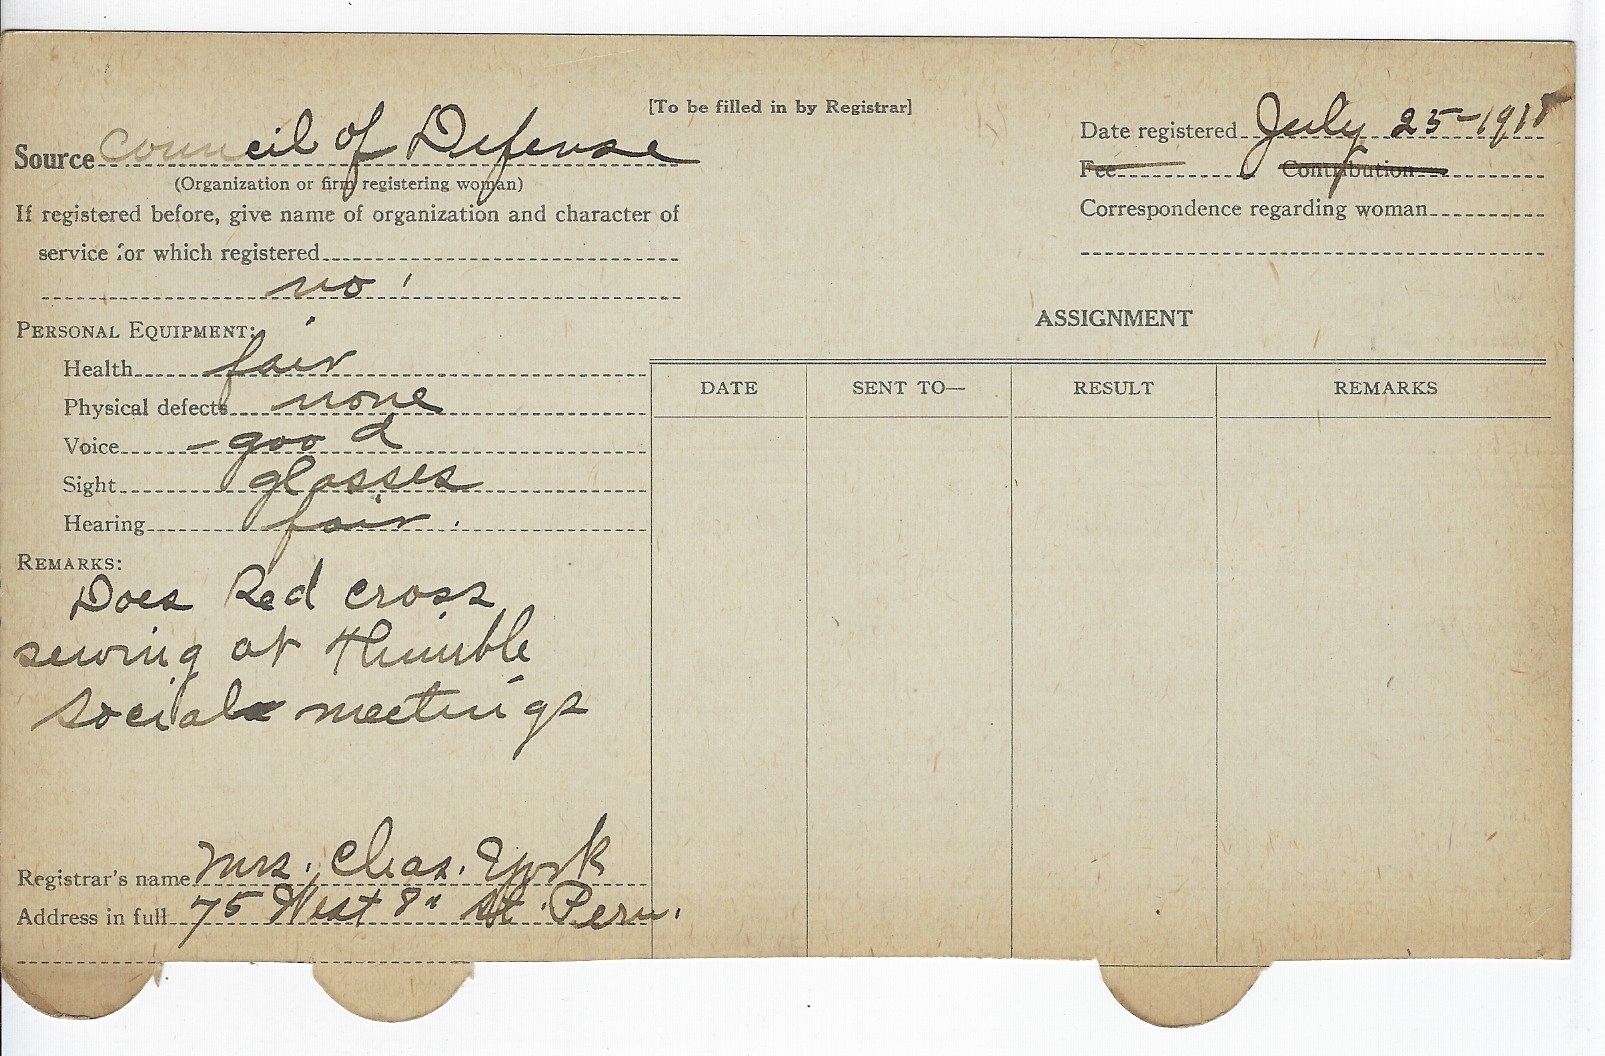 [To be filled in by Registrar]
Source Council of Defense
(Organization or firm registering woman)
If registered before, give name of organization and character of
service for which registered
no
PERSONAL EQUIPMENT:
Health fair
Physical defects none
Voice - good
Sight glasses
Hearing fair.
REMARKS:
Does Red cross
sewing at Thimble
social meetings
Registrar's name Mrs. Chas. York
Address in full 75 West 8" St. Peru.
Date registered July 25-1918
Fee Contribution
Correspondence regarding woman
ASSIGNMENT
DATE SENT TO— RESULT REMARKS